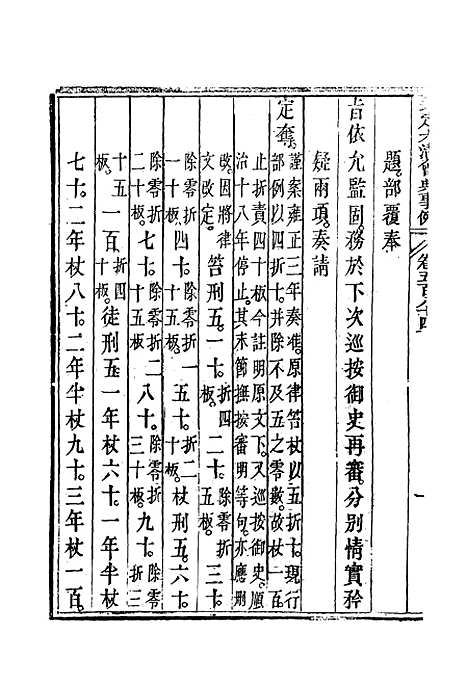 定大清會典事例 卷五百八十四 一
題。部覆奉
旨依允監固。務於下次巡按御史再審。分別情實矜
疑兩項。奏請
定奪。謹案雍正三年奏准。原律笞杖以五折十。現行
部例以四折十。並除不及五之零數。故杖一百
止折責四十板。今註明原文下。又巡按御史。順
治十八年停止。其末節撫按審明等句。亦應刪
改。因將律文改定。笞刑五。一十。折四板。二十。除零折五板。三十。
除零折一十板。四十。除零折一十五板。五十。折二十板。杖刑五。六十。
除零折二十板。七十。除零折二十五板。八十。除零折三十板。九十。除零折三
十五板。一百。折四十板。徒刑五。一年杖六十。一年半杖
七十。二年杖八十。二年半杖九十。三年杖一百。